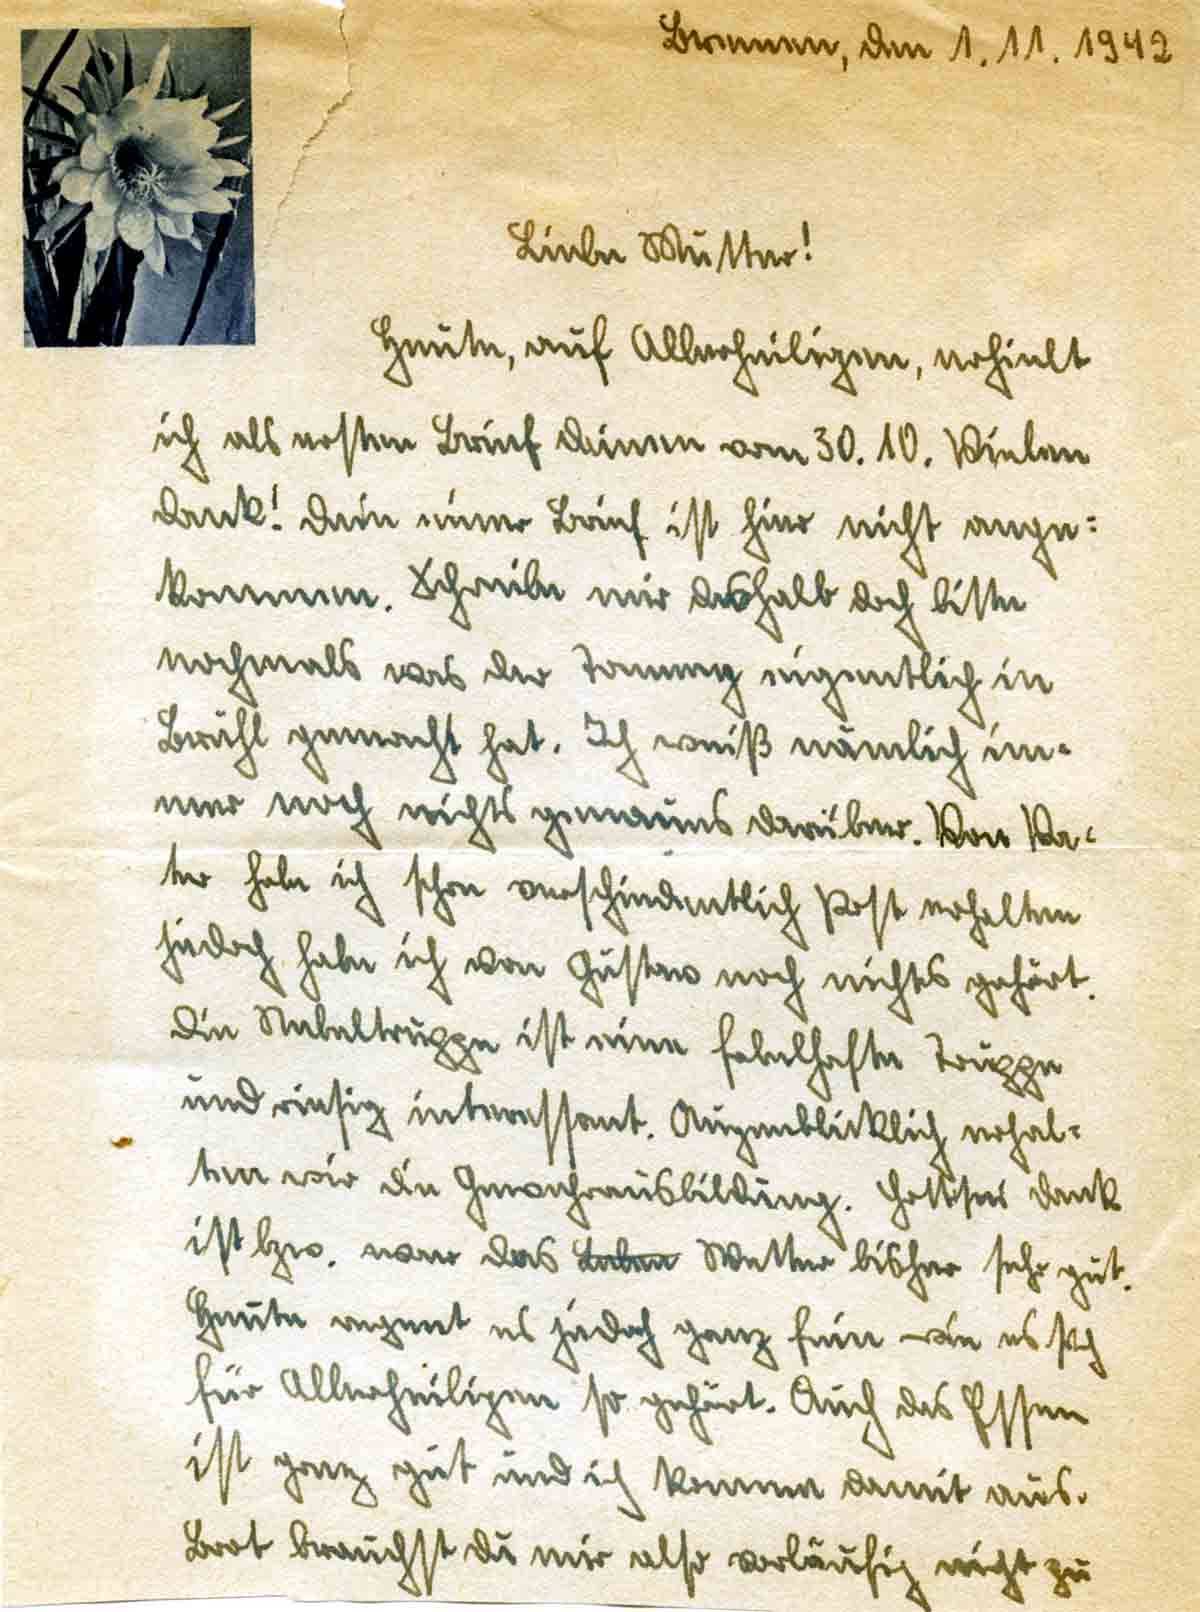 Bremen, den 1. 11. 1942
Liebe Mutter!
Heute, auf Allerheiligen, erhielt
ich als ersten Brief deinen vom 30. 10. Vielen
dank! dein einer Brief ist hier nicht ange=
kommen. Schreibe mir deshalb doch bitte
nochmals was der Tommy eigentlich in
Brühl gemacht hat. Ich weiß nämlich im-
mer noch nichts genaues darüber. Von Va-
ter habe ich schon verschiedentlich Post erhalten
jedoch habe ich von Gustav noch nichts gehört.
die Nebeltruppe ist eine fabelhafte Truppe
und riesig interessant. Augenblicklich erhal-
ten wir die Gewehrausbildung. Gottsei dank
ist bzw. war das Leben Wetter bisher sehr gut.
Heute regent es jedoch ganz fein wie es sich
für Allerheiligen so gehört. Auch das Essen
ist ganz gut und ich komme damit aus.
Brot brauchst du mir also vorläufig nicht zu